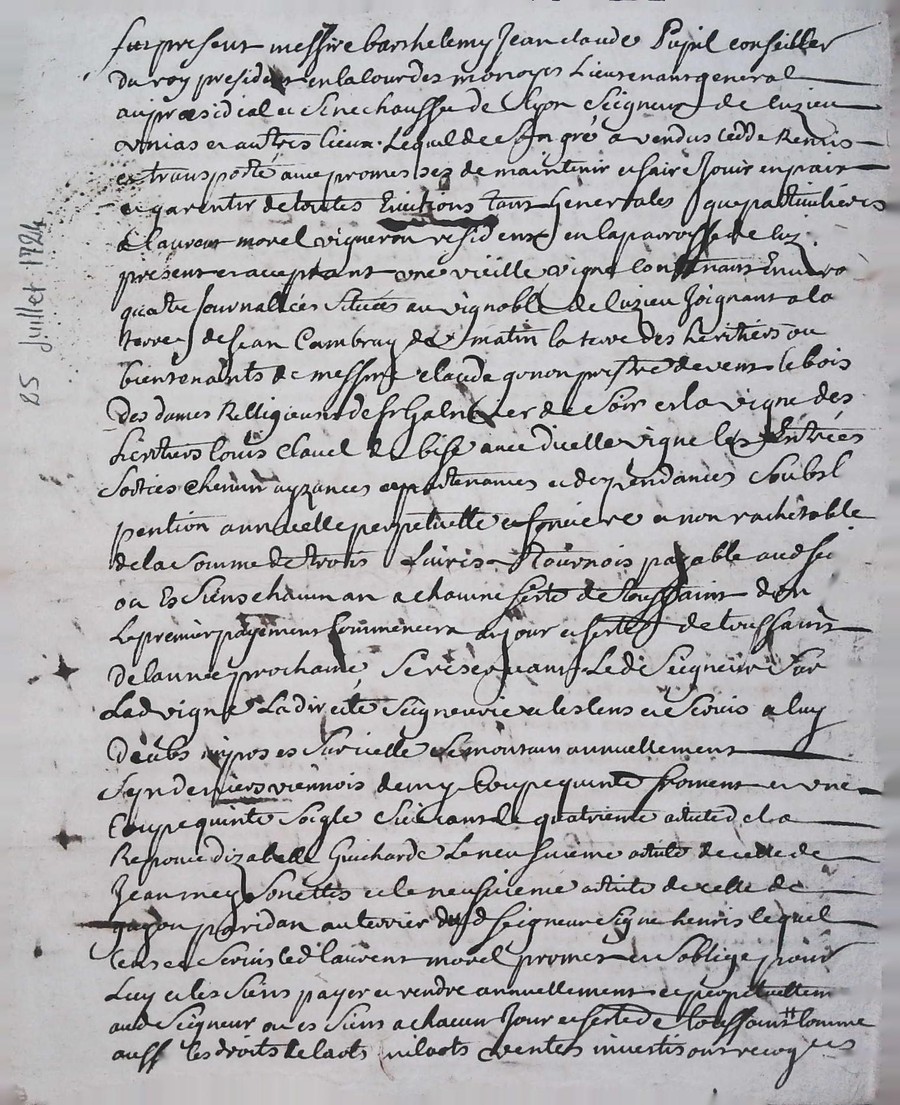 25 Juillet 1724
fut present messire barthelemy Jean claude Pupil conseiller
du roy president en la cour des monoyes Lieutenant general
au presidial et Senechaussée de Lyon Seigneur de luzieu
et autres lieux Lequel de son gré a vendus ceddé Remis
et transporté avec promesses de maintenir et faire Jouir en paix
et garentir de toutes Evictions tant Generales que particulieres
a laurent morel vigneron resident en la parroisse de
present et acceptant une vieille vigne contenant Enviro
quatre Journallées Situées au vignoble de luzieu Joignant a la
terre de Jean Cambray de matin la terre des heritiers ou
bientenants de messire claude prestre de vent le bois
Des dames Relligieuses de st Galmier de Soir et la vigne des
heritiers louis Clavel de bise avec d'icelle vigne les Entrées
Sorties chemin ayzances appartenances et dependances Soubs l
pention annuelle perpetuelle et fonciere et non rachetable
de la Somme de trois Livres Tournois payable aud
ou Es Siens chacun an a chacune feste de Toussaint dont
Le premier payement Commencera au jour et feste de toussaint
de lannée prochaine, Se reservant Ledt Seigneur Sur
Lad vigne La directe Seigneurie et les Cens et Servis a luy
Deubs imposes Sur icelle Se montant annuellement
deniers viennois demy Coupe quinte froment et une
Coupe quinte Soigle Suivant le quatrieme article de la
Reponce dizabelle Guicharde Le neufvieme article de celle de
Jean mey Sonettes et le neufvieme article de celle de
paridan au terrier dud Seigneur Signe henris lequel
Cens et Servis led laurent morel promet et Soblige pour
Luy et les Siens payer et rendre annuellement et perpetuellem
aud Seigneur ou es Siens a chacun Jour et feste de Toussaint Comme
aussy les droits de laots milaots ventes